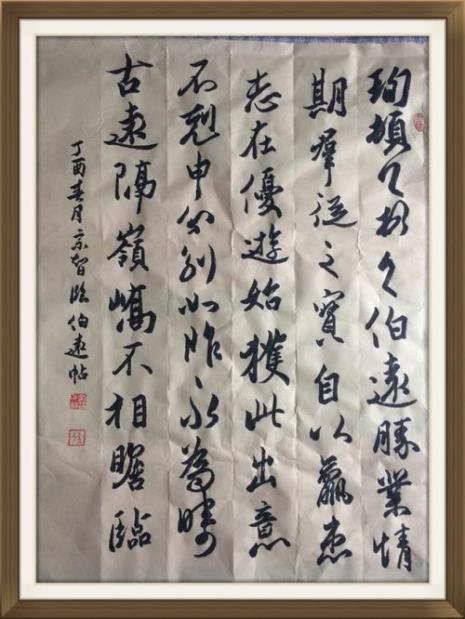 珣頓首頓首伯遠勝業情
期群從之寶自以羸患
志在優遊始獲此出意
不剋申分別如昨永為疇
古遠隔嶺嶠不相瞻臨
丁酉春月京智臨伯遠帖